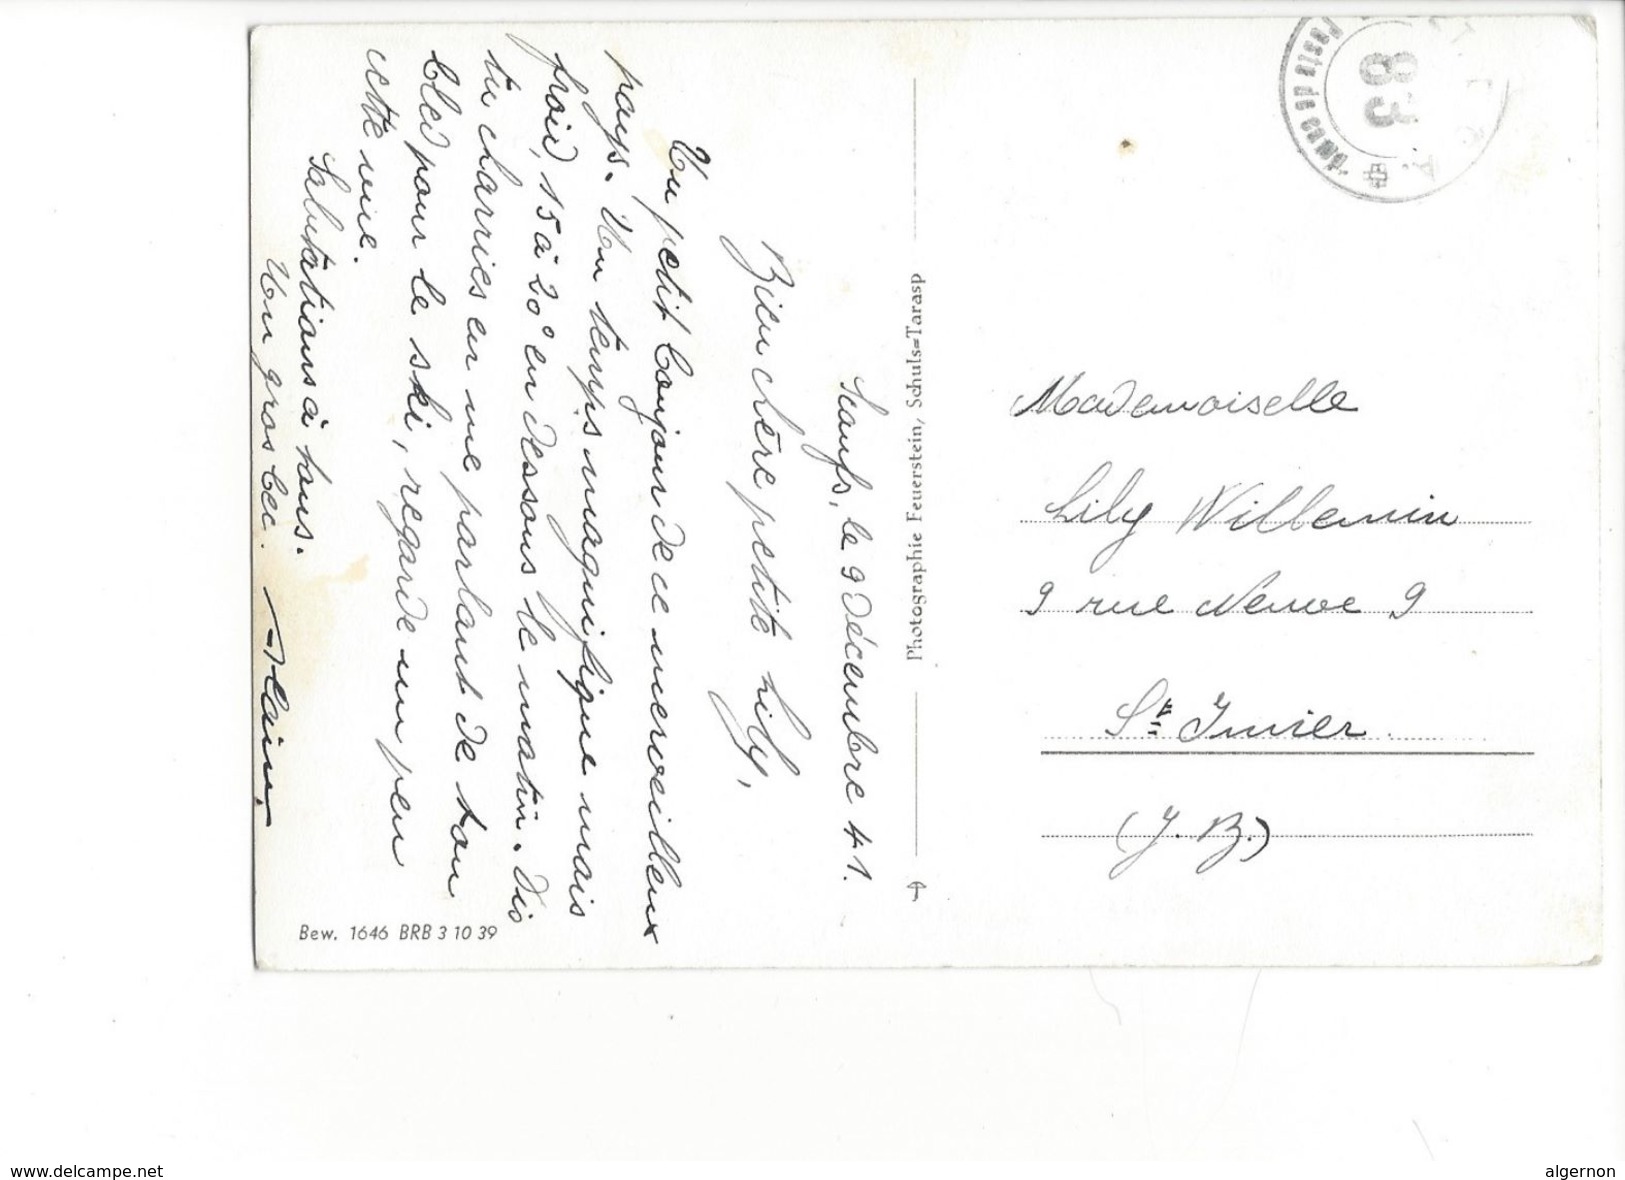 Scanfs, le 9 Décembre 41.
Bien chère petite Lily,
Un petit bonjour de ce merveilleux
pays. Un temps magnifique mais
froid, 15 à 20° en dessous le matin. Dis
tu charries en me parlant de ton
bled pour le ski, regarde un peu
cette vue.
Salutations à tous.
Un gros bec. Alain
Bew. 1646 BRB 3 10 39
Photographie Feuerstein, Schuls=Tarasp
83
Poste de camp
Mademoiselle
Lily Willemin
9 rue Neuve 9
St. Imier
(J. B.)
www.delcampe.net
algernon